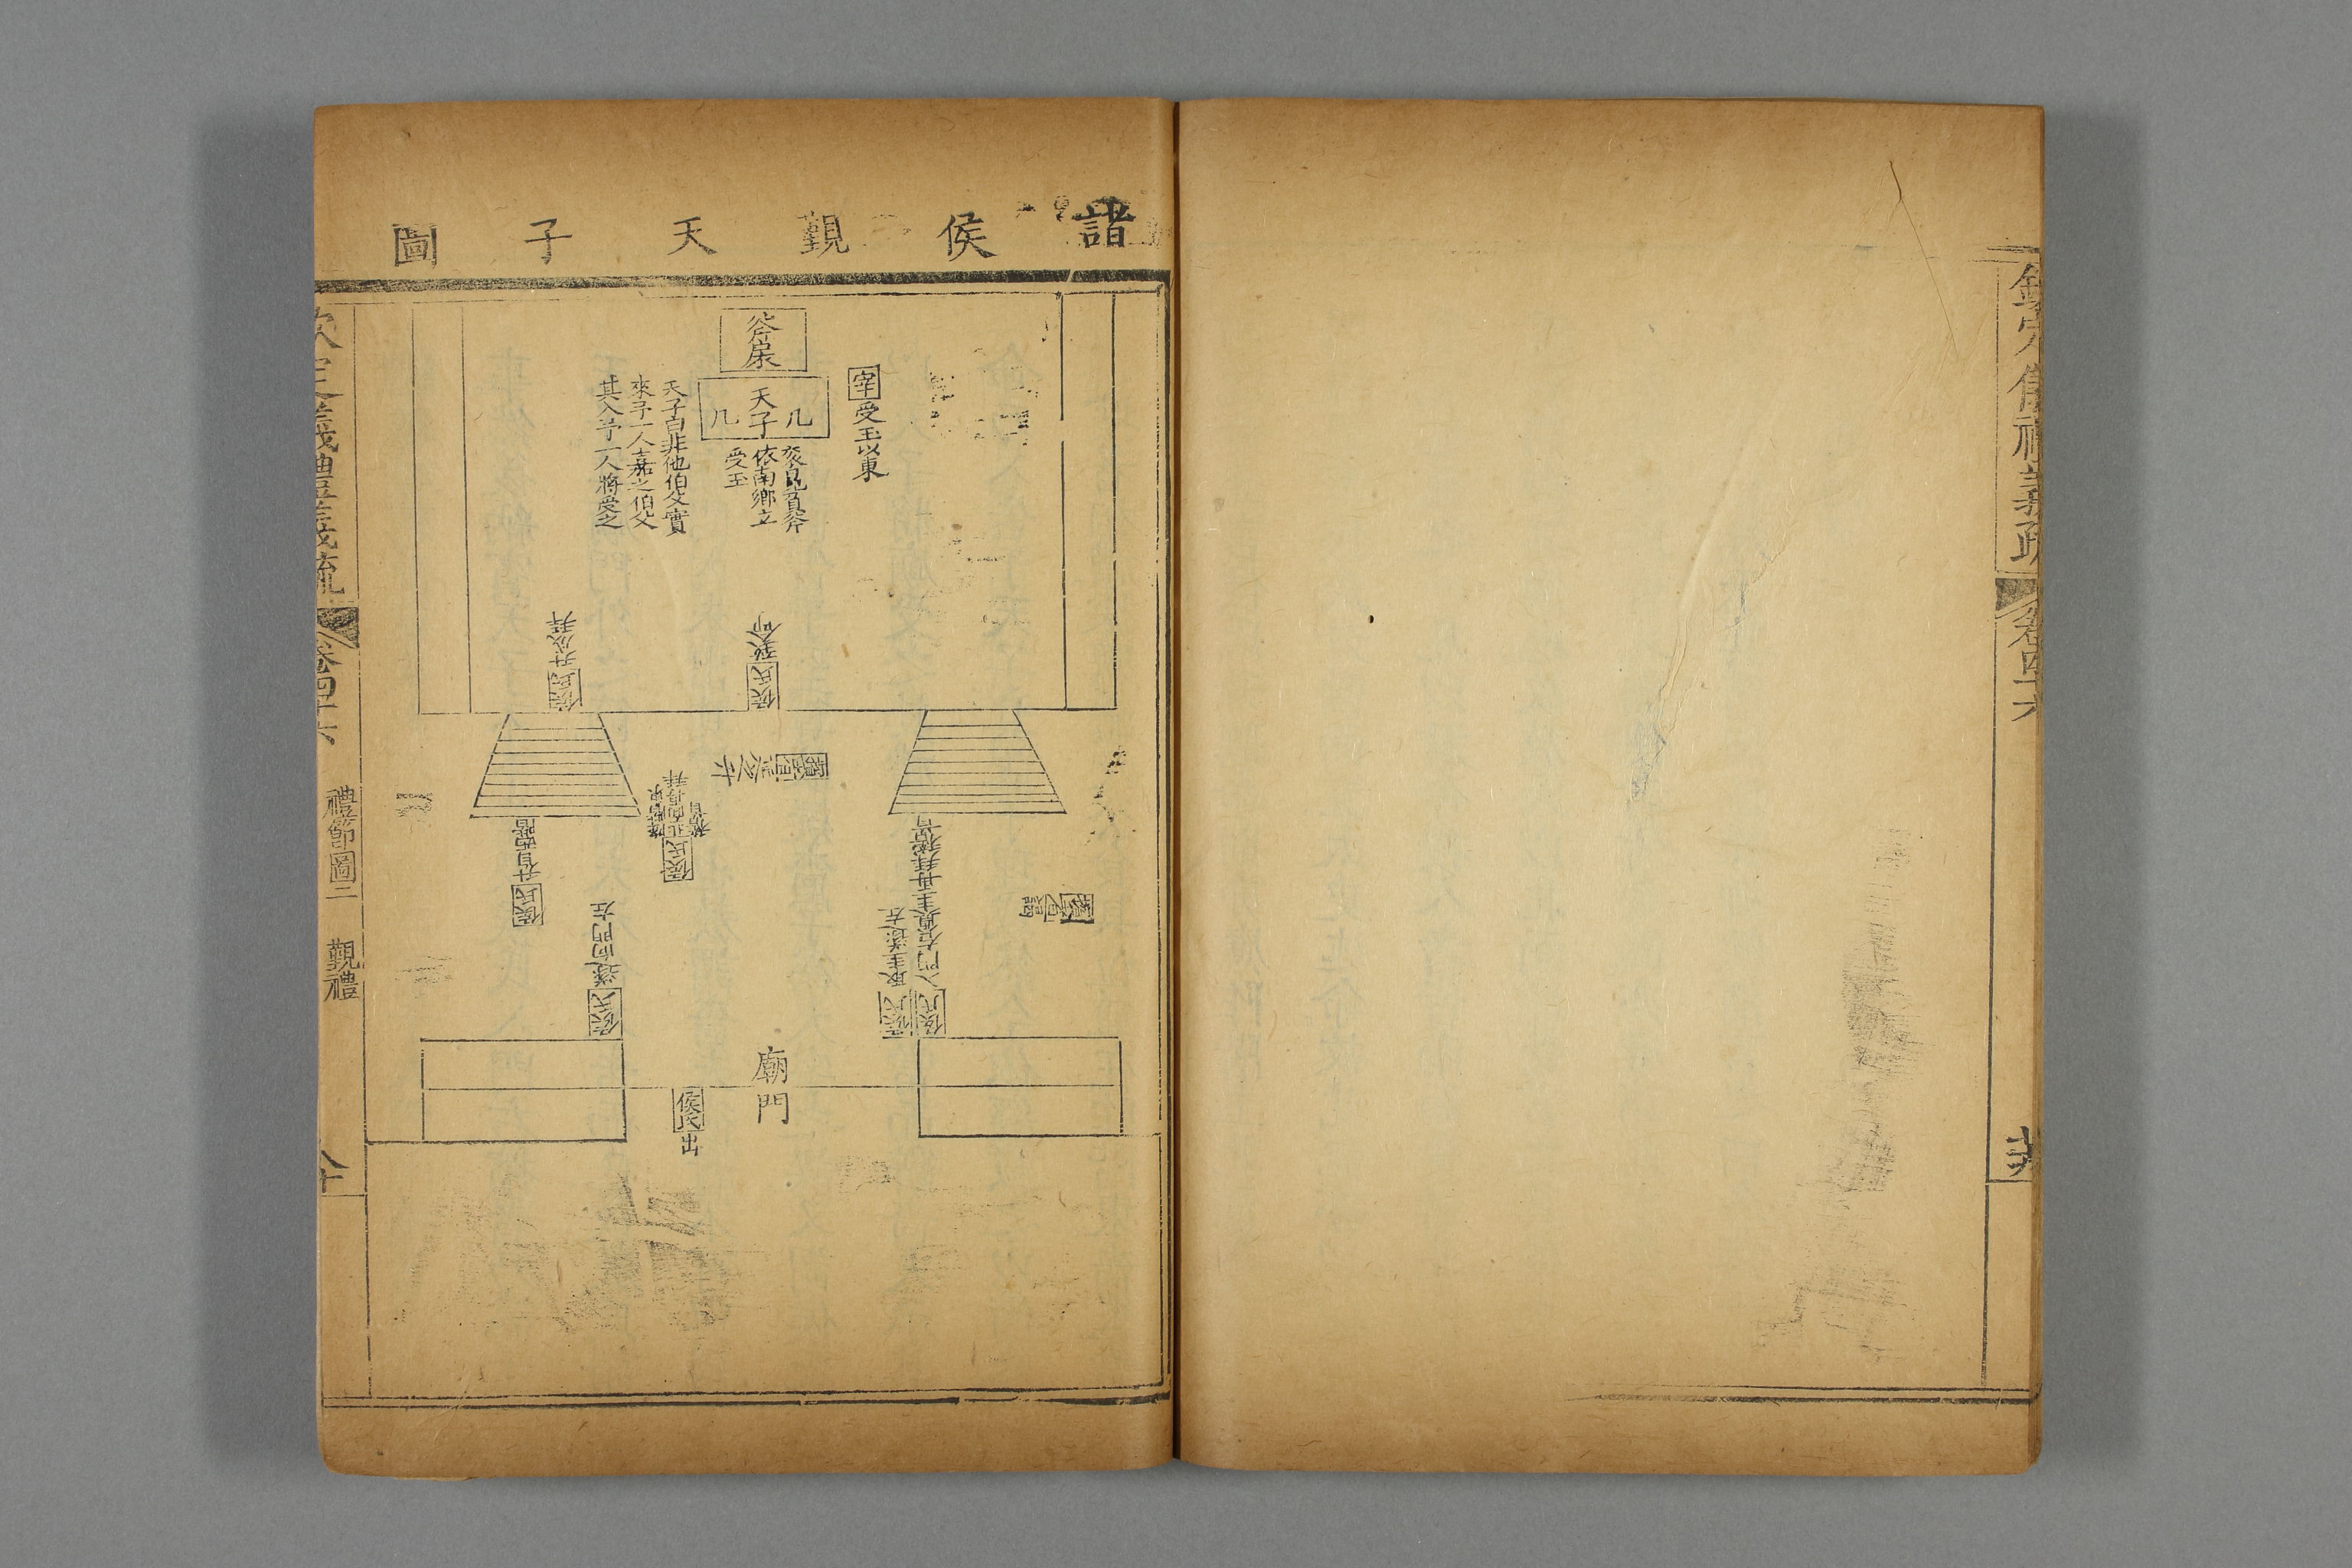 欽定儀禮義疏
卷四十六
諸侯覲天子圖
斧扆
几
天子
几
宰受玉以東
袞冕負斧
依南鄉立
受玉
天子曰非他伯父實
來予一人嘉之伯父
其入予一人將受之
侯氏致命
侯氏升成拜
擯者延之升
侯氏升自西階
侯氏北面再拜
稽首
侯氏入門右奠圭再拜稽首
侯氏取圭遂左
侯氏遂向門左
擯者謁
廟門
侯氏出
欽定義禮義疏
卷四十六
禮節圖二
覲禮